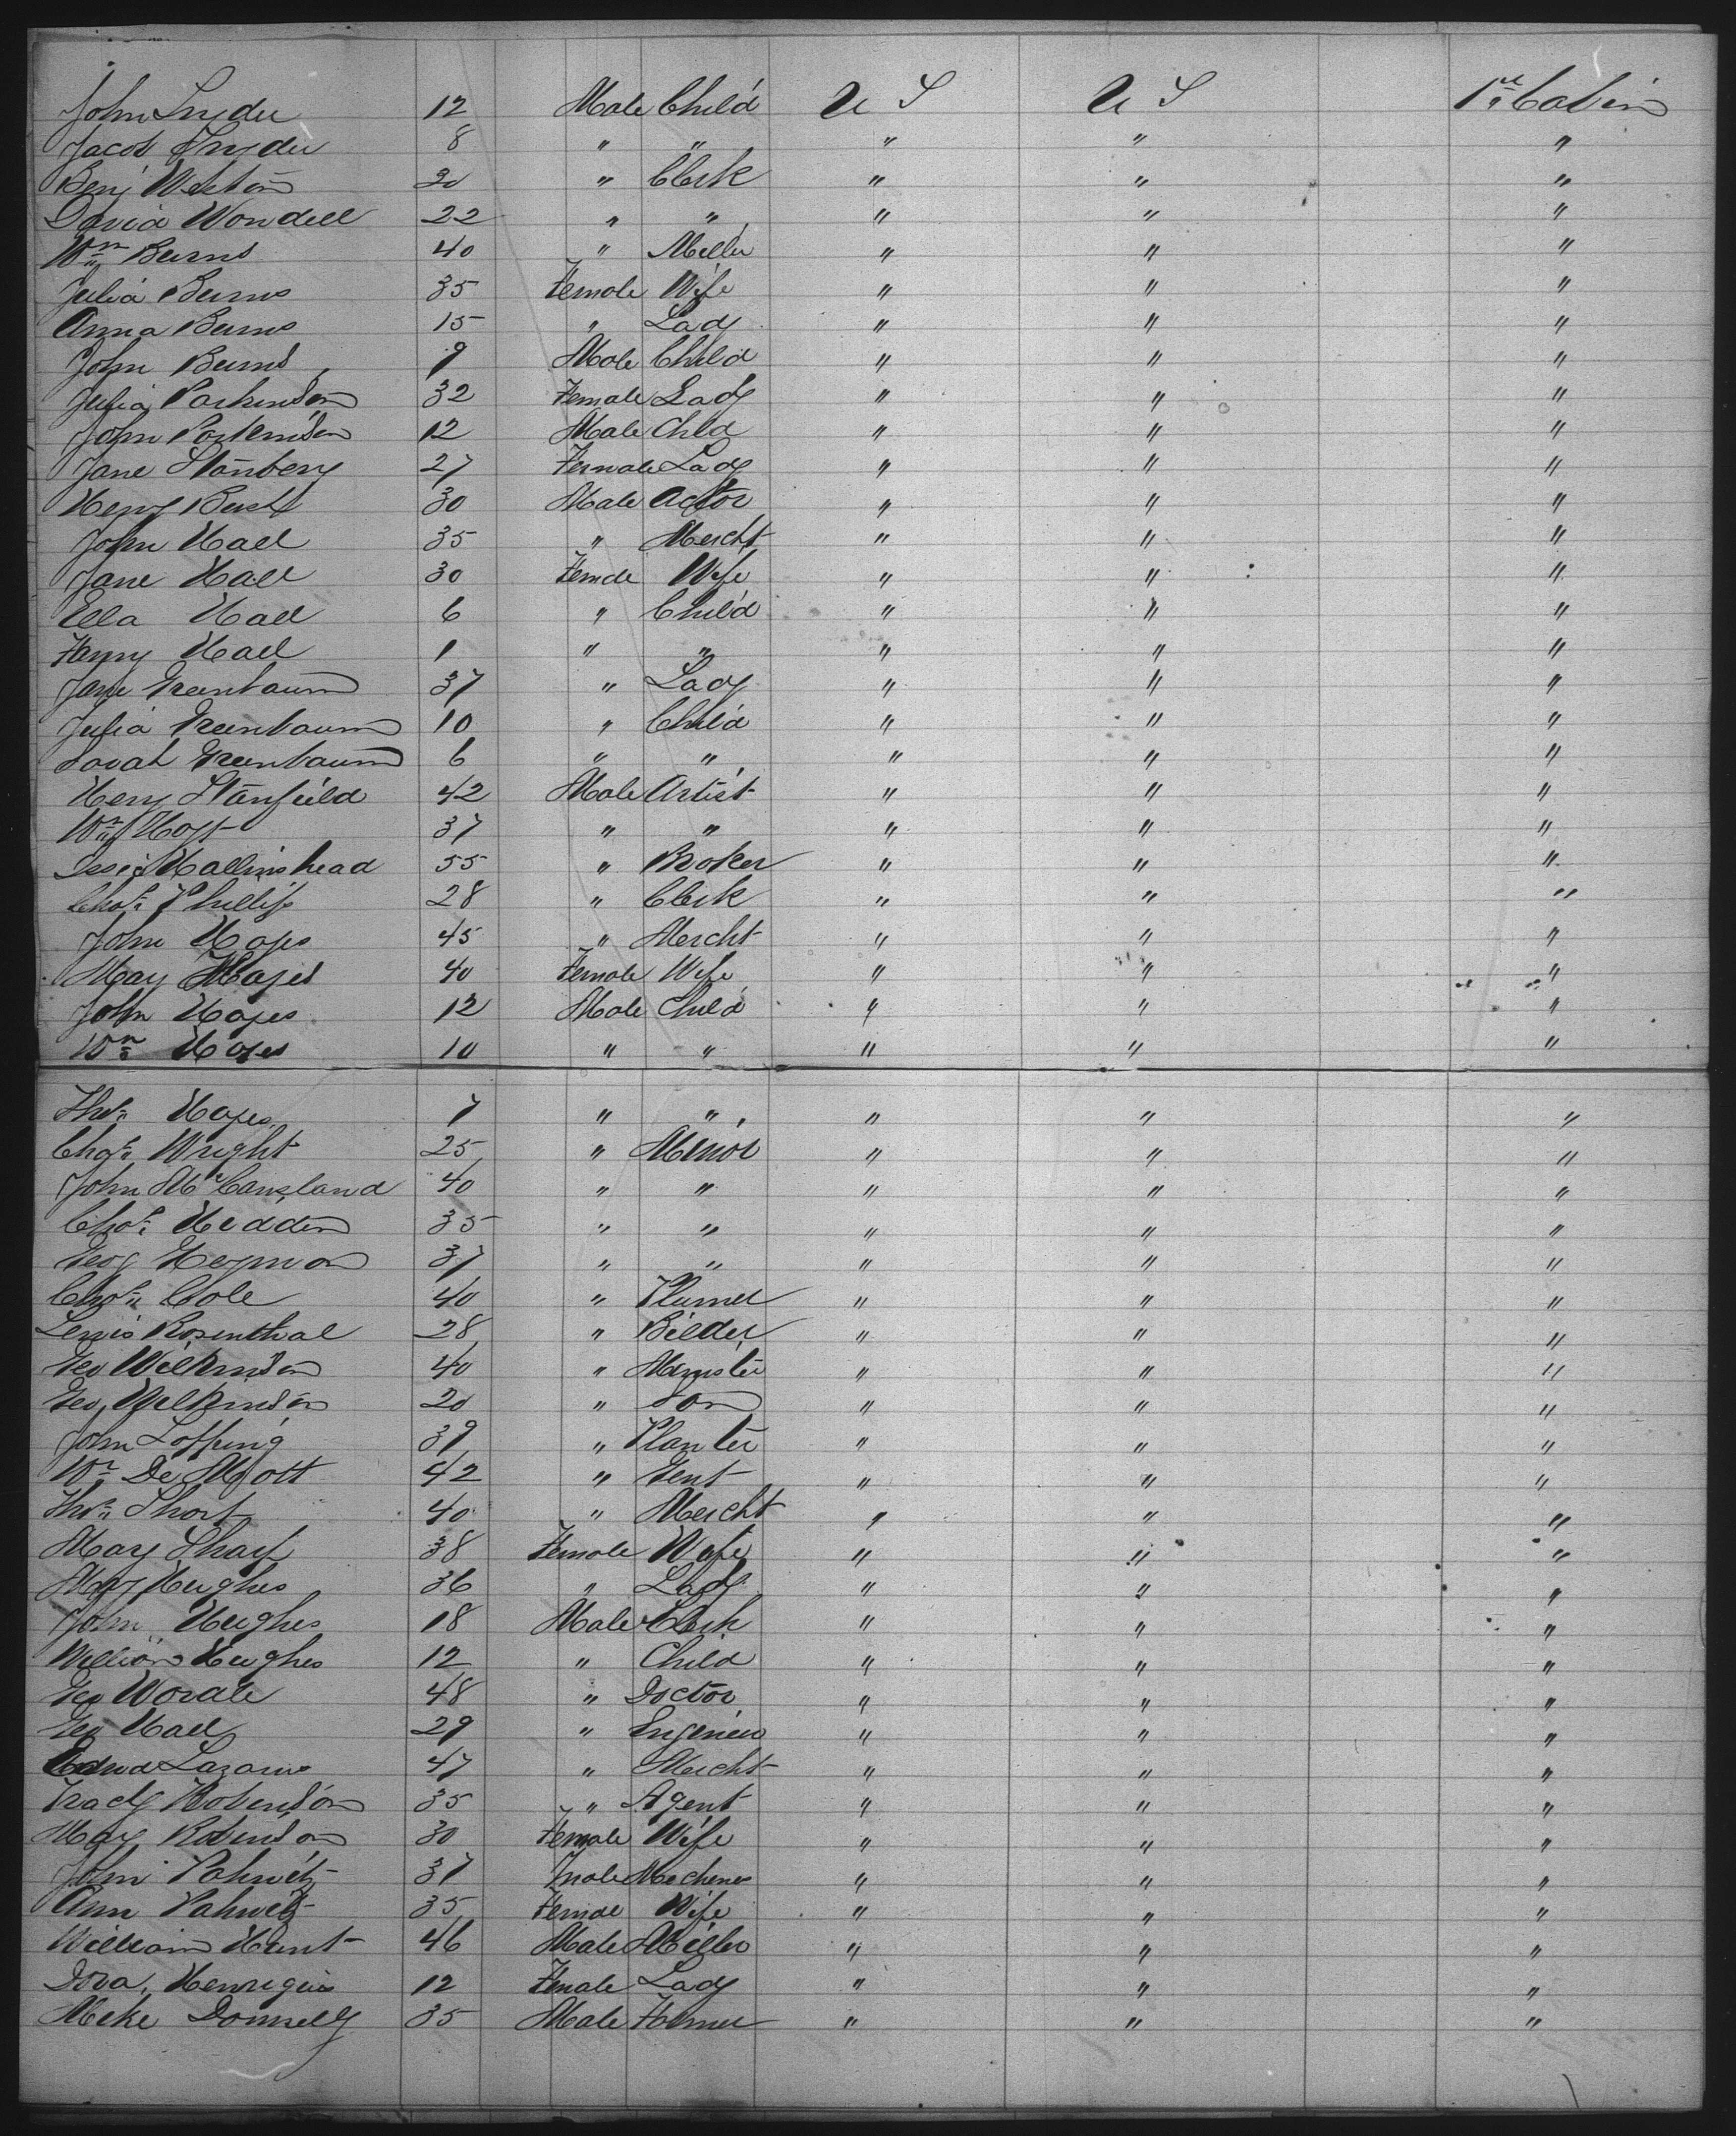 John Snyder 12 Male Child U S U S 1st Cabin
Jacob Snyder 8 " " " " "
Benj Weston 20 " Clerk " " "
David Wondell 22 " " " " "
Wm Burns 40 " Miller " " "
Julia Burns 35 Female Wife " " "
Anna Burns 15 " Lady " " "
John Burns 9 Male Child " " "
Julia Parkinson 32 Female Lady " " "
John Parkinson 12 Male Chld " " "
Jane Stanbery 27 Female Lady " " "
Henry 30 Male Actor " " "
John Hall 35 " Mercht " " "
Jane Hall 30 Femele Wife " " "
Ella Hall 6 " Child " " "
Fanny Hall 1 " " " " "
Jane Greenbaum 37 " Lady " " "
Julia Greenbaum 10 " Child " " "
Sarah Greenbaum 6 " " " " "
Henry Stanfield 42 Male Artist " " "
Wm Hoyt 37 " " " " "
Hallinshead 55 " Broker " " "
Chas Phillips 28 " Clerk " " "
John Hayes 45 " Mercht " " "
Mary Hayes 40 Female Wife " " "
John Hayes 12 Male Child " " "
Wm Hayes 10 " " " " "
Thos Hayes 7 " " " " "
Chas Wright 25 " Minor " " "
John McCausland 40 " " " " "
Chas Hedden 35 " " " " "
Geog Heyman 37 " " " " "
Chas Cole 40 " Plumer " " "
Lewis Rosenthal 28 " Bilder " " "
Geo Wilkinson 40 " " " "
Geo Wilkinson 20 " Son " " "
John 39 " Planter " " "
Wm De Mott 42 " Gent " " "
Thos Sharp 40 " Mercht " " "
Mary Sharp 38 Female Wife " " "
Mary Hughes 36 " Lady " " "
John Hughes 18 Male Clerk " " "
William Hughes 12 " Child " " "
Geo 48 " Doctor " " "
Geo Hall 29 " Engineer " " "
Edwd Lazarus 47 " Mercht " " "
Tracy Robinson 35 " Agent " " "
Mary Robinson 30 Female Wife " " "
John Pahwitz 37 Male " " "
Ann Pahwitz 35 Female Wife " " "
William Hunt 46 Male Miller " " "
Dora Henriques 12 Female Lady " " "
Mike Donnelly 35 Male Farmer " " "